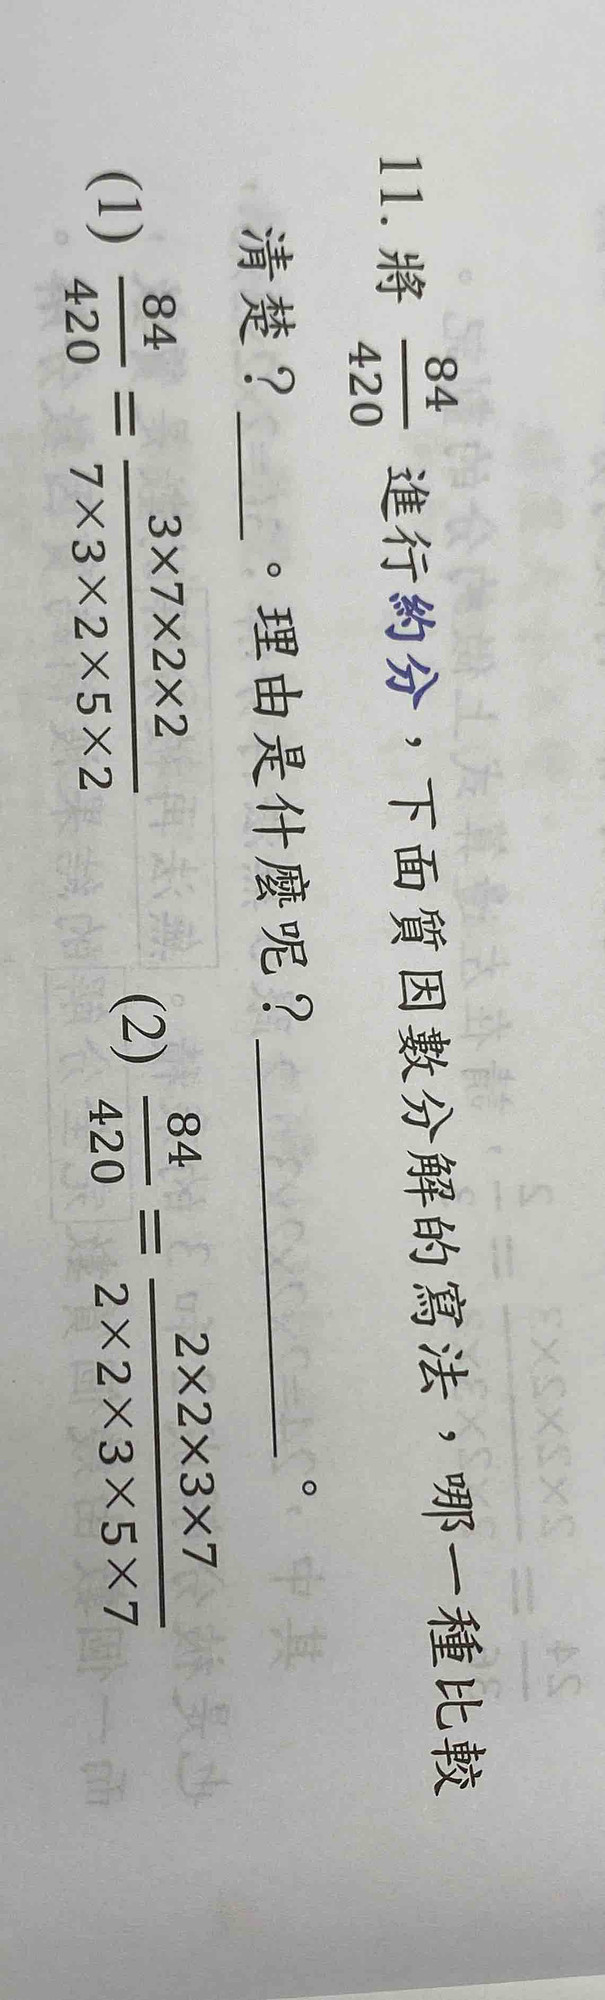 11. 將 84/420 進行約分，下面質因數分解的寫法，哪一種比較
清楚？____。理由是什麼呢？____________。
(1) 84/420 = 3×7×2×2/7×3×2×5×2 (2) 84/420 = 2×2×3×7/2×2×3×5×7